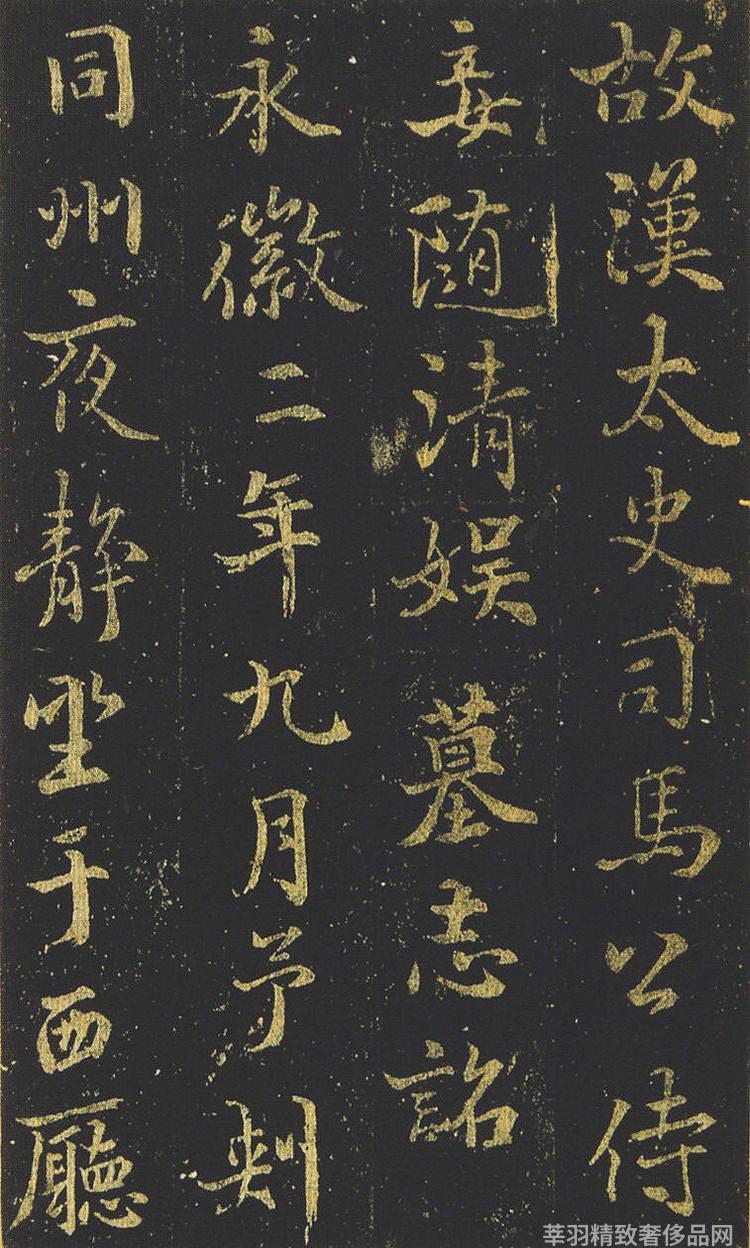 故漢太史司馬公侍
妾随清娱墓志銘
永徽二年九月予刺
同州夜静坐于西廳
莘羽精致奢侈品网